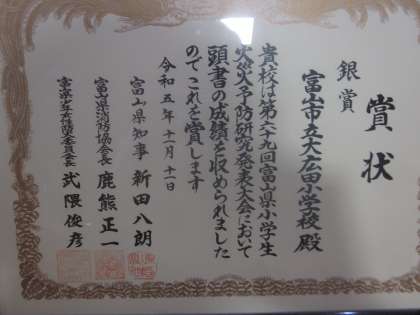 賞状
銀賞
富山市立大広田小学校 殿
貴校は第六十九回富山県小学生
火災予防研究発表大会において
頭書の成績を収められました
のでこれを賞します
令和五年十一月十一日
富山県知事 新田八朗
富山県消防協会長 鹿熊正一
武隈俊彦